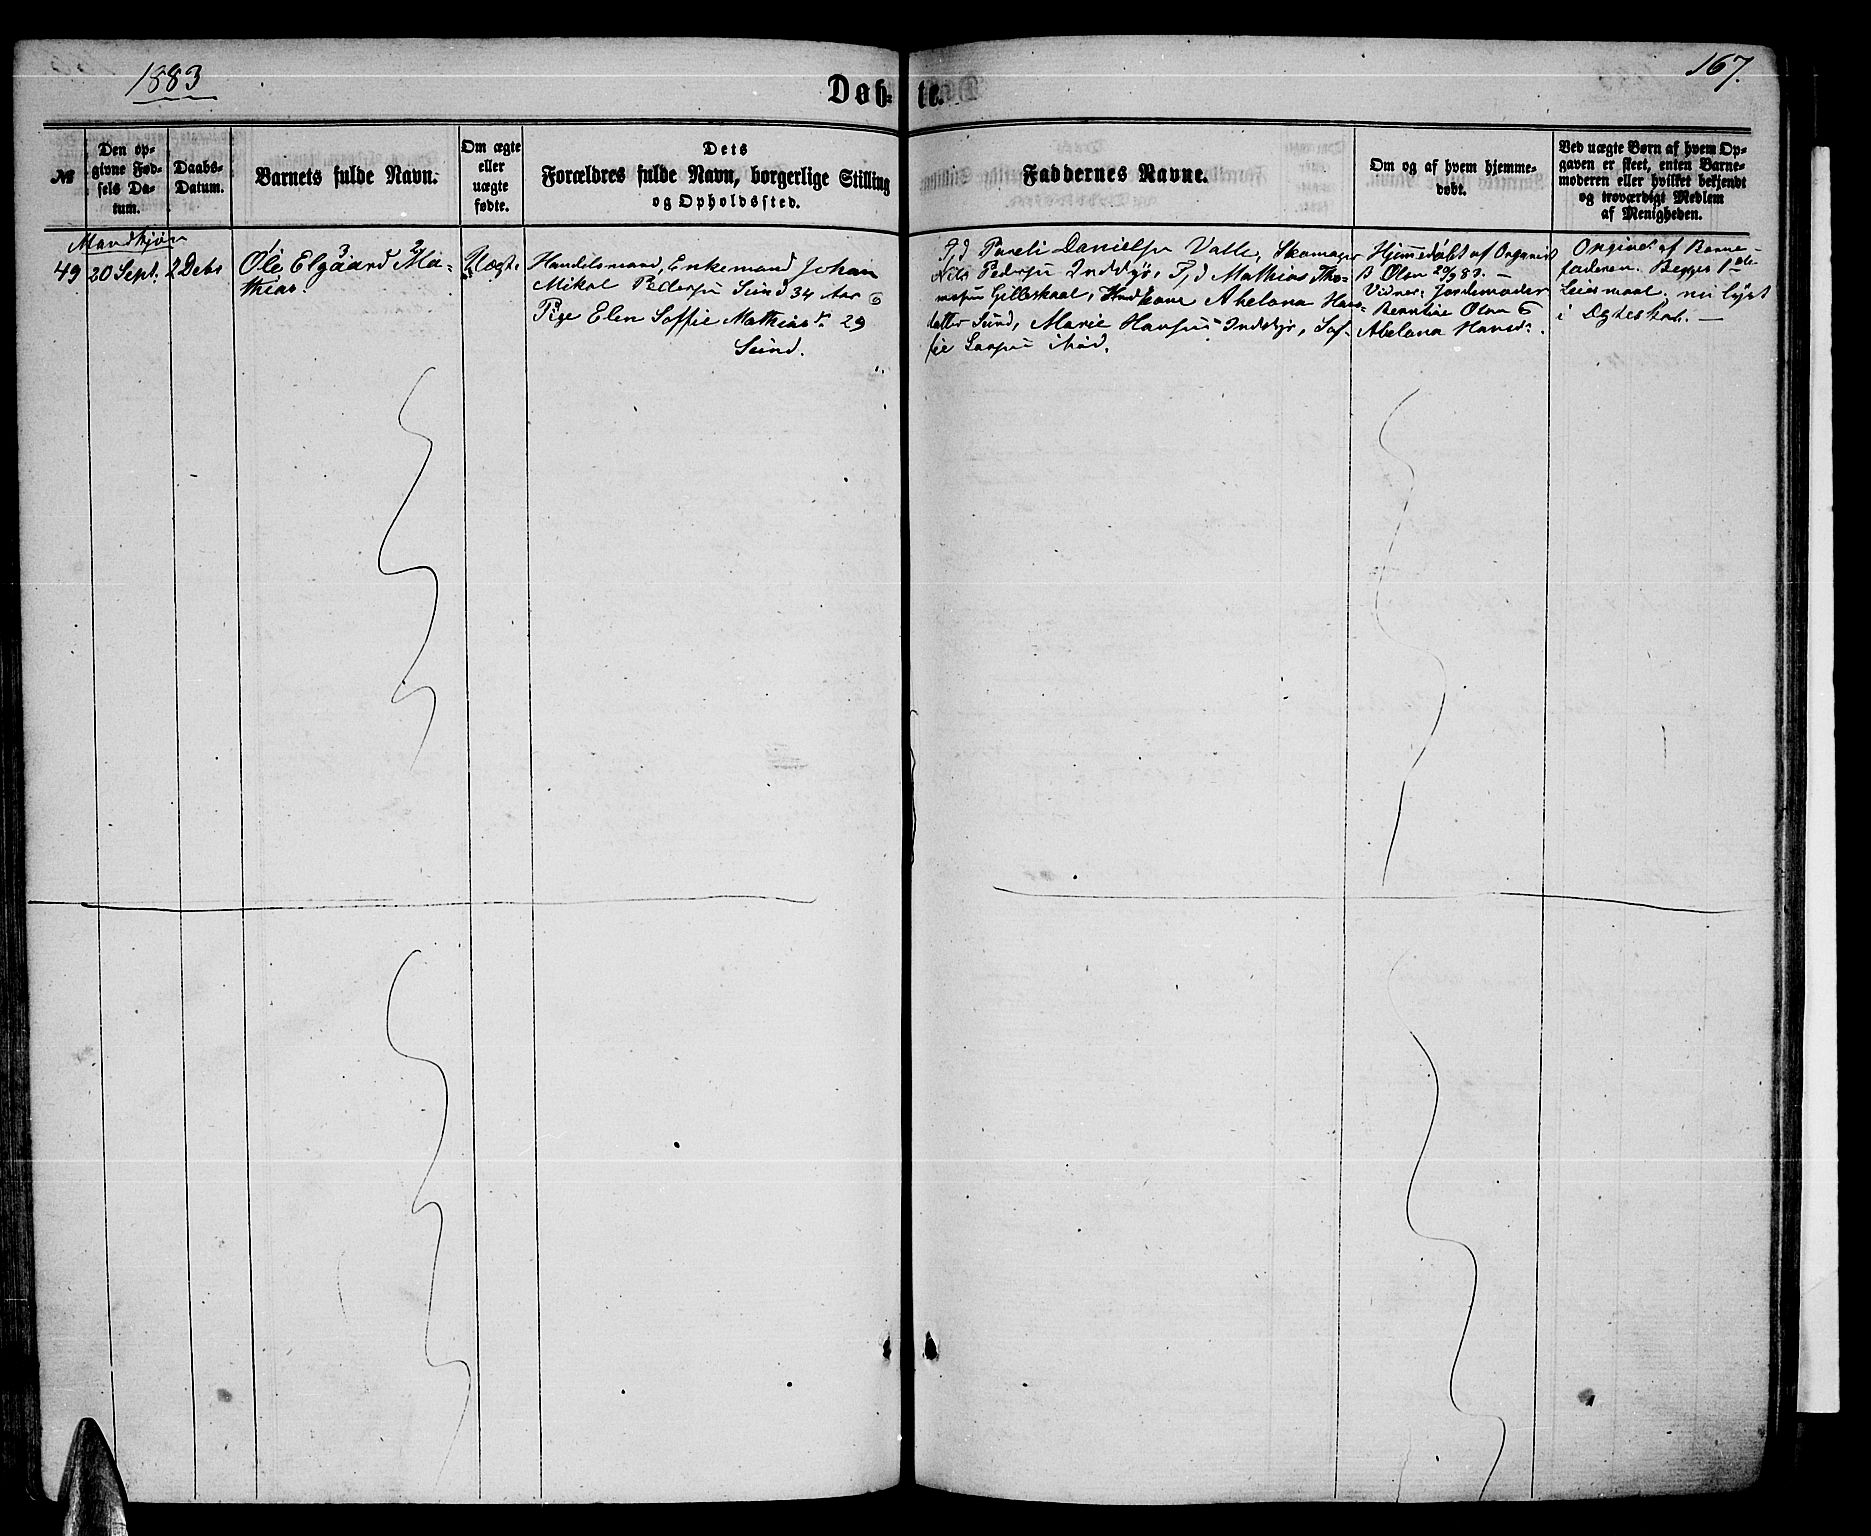 1883
167.
Døb-
te.
№
Den op-
givne Fød-
sels Da-
tum.
Daabs-
Datum.
Barnets fulde Navn.
Om ægte
eller
uægte
fødte.
Dets
Forældres fulde Navn, borgerlige Stilling
og Opholdssted.
Faddernes Navne.
Om og af hvem hjemme-
døbt.
Ved uægte Børn af hvem Op-
gaven er skeet, enten Barne-
moderen eller hvilket bekjendt
og troværdigt Medlem
af Menigheden.
Mandkjøn
49
20 Sept.
2 Debr
1 3 2
Ole Elgaard Ma-
thias.
Uægte
Handelsmand, Enkemand Johan
Mikal Pedersen Sund 34 Aar &
Pige Elen Soffie Mathiasd. 29
Sund.
Pareli Danielsen Valle, Skomager
Nils Pedersen Inddyr, Mathias Tho-
masen Gilleskaal, Abelona Hans-
datter Sund, Marie Hansen Inddyr, Sof-
fie Larsen
Hjemmedøbt af Organist
B Olsen 22/9 83. —
Vidner: Jordemoder
Berntine Olsen &
Abelona Hansd.
Opgivet af Barne-
faderen. Begges 1ste
Leiermaal, nu lyst
i Ægteskab. —